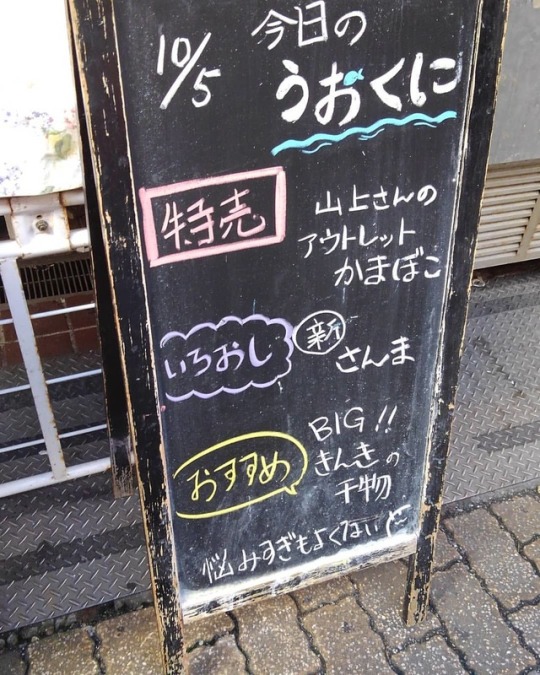 10/5
今日の
うおくに
特売
山上さんの
アウトレット
かまぼこ
いちおし
新
さんま
おすすめ
BIG!!
きんきの
干物
悩みすぎもよくない